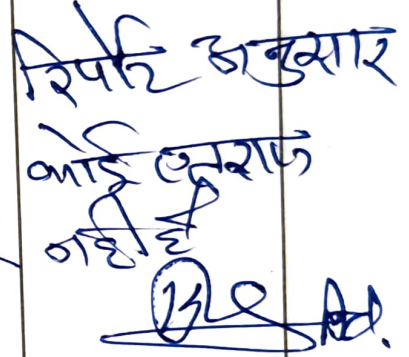 रिपोर्ट अनुसार
कोई एतराज
नहीं है